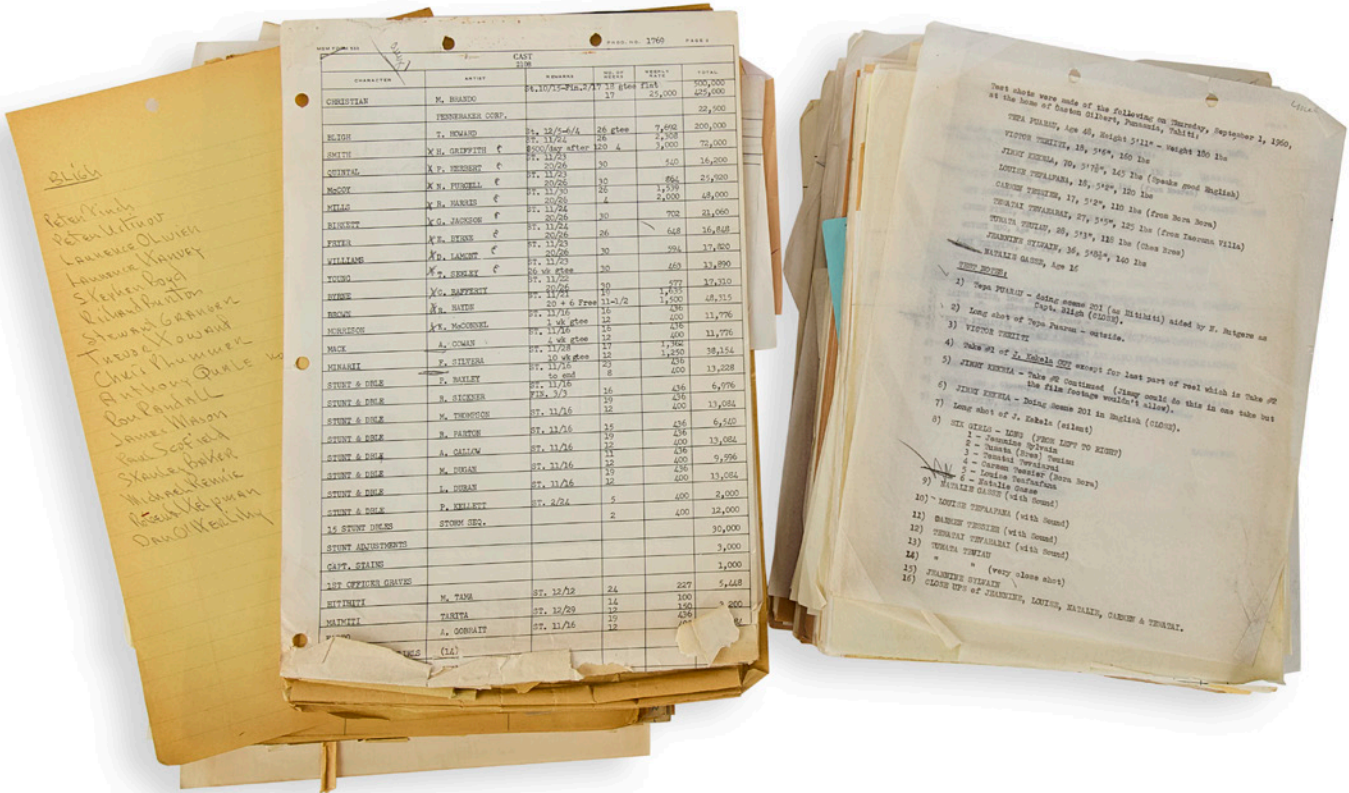 BLIGH
Peter Finch
Peter Ustinov
Laurence Olivier
Laurence Harvey
Stephen Boyd
Richard Burton
Stewart Granger
Trevor Howard
Chris Plummer
Anthony Quale
Ron Randall
James Mason
Paul Scofield
Stanley Baker
Michael Rennie
Robert Helpman
Dan O'Herlihy
MGM FORM PROD. NO. 1760 PAGE 2
CAST
2108
CHARACTER ARTIST REMARKS NO. OF WEEKS WEEKLY RATE TOTAL
St.10/15-Fin.2/17 18 gtee flat 500,000
CHRISTIAN M. BRANDO 17 25,000 425,000
PENNEBAKER CORP. 22,500
BLIGH T. HOWARD St. 12/5-6/4 26 gtee 7,692 200,000
ST. 11/24 26 2,308
SMITH X H. GRIFFITH $500/day after 120 4 3,000 72,000
ST. 11/23
QUINTAL X P. HERBERT 20/26 30 540 16,200
ST. 11/23
McCOY X N. PURCELL 20/26 30 864 25,920
ST. 11/30 26 1,539
MILLS X R. HARRIS 20/26 4 2,000 48,000
ST. 11/24
BIRKETT X G. JACKSON 20/26 30 702 21,060
ST. 11/24
FRYER X E. BYRNE 20/26 26 648 16,848
ST. 11/23
WILLIAMS X D. LAMONT 20/26 30 594 17,820
ST. 11/23
YOUNG X T. SEELEY 26 wk gtee 30 463 13,890
ST. 11/22
BYRNE X C. RAFFERTY 20/26 30 577 17,310
ST. 11/21 18 1,635
BROWN X R. HAYDN 20 + 6 Free 11-1/2 1,500 48,315
ST. 11/16 16 436
MORRISON X K. McCONNEL 1 wk gtee 12 400 11,776
ST. 11/16 16 436
MACK A. COWAN 4 wk gtee 12 400 11,776
ST. 11/28 17 1,362
MINARII F. SILVERA 10 wk gtee 12 1,250 38,154
ST. 11/16 23 436
STUNT & DBLE P. BAXLEY to end 8 400 13,228
ST. 11/16
STUNT & DBLE R. SICKNER FIN. 3/3 16 436 6,976
19 436
STUNT & DBLE M. THOMPSON ST. 11/16 12 400 13,084
STUNT & DBLE B. PARTON 15 436 6,540
19 436
STUNT & DBLE A. CALLOW ST. 11/16 12 400 13,084
11 436
STUNT & DBLE M. DUGAN ST. 11/16 12 400 9,596
19 436
STUNT & DBLE L. DURAN ST. 11/16 12 400 13,084
STUNT & DBLE P. KELLETT ST. 2/24 5 400 2,000
15 STUNT DBLES STORM SEQ. 2 400 12,000
STUNT ADJUSTMENTS 30,000
CAPT. STAINS 3,000
1ST OFFICER GRAVES 1,000
HITIHITI M. TAMA ST. 12/12 24 227 5,448
14 100
MAIMITI TARITA ST. 12/29 12 150 3,200
19 436
A. GORRAIT ST. 11/16 12
(14)
Test shots were made of the following on Thursday, September 1, 1960,
at the home of Gaston Gilbert, Punaauia, Tahiti
TEPA PUARAU, Age 48, Height 5'11" - Weight 180 lbs
VICTOR TERIITI, 18, 5'6", 160 lbs
JIMMY KEKELA, 70, 5'7½", 145 lbs (Speaks good English)
LOUISE TEFAAFANA, 18, 5'2", 120 lbs
CARMEN TESSIER, 17, 5'2", 110 lbs (from Bora Bora)
TEMATAI TEVAHARAI, 27, 5'5", 125 lbs (from Taoruna Villa)
TUMATA TEUIAU, 28, 5'3", 118 lbs (Chez Bree)
JEANNINE SYLVAIN, 36, 5'8½", 140 lbs
NATALIE GASSE, Age 16
TEST NOTES:
1) Tepa PUARAU - doing scene 201 (as Hitihiti) aided by N. Rutgers as
Capt. Bligh (CLOSE).
2) Long shot of Tepa Puarau - outside.
3) VICTOR TERIITI
4) Take #1 of J. Kekela CUT except for last part of reel which is Take #2
5) JIMMY KEKELA - Take #2 Continued (Jimmy could do this in one take but
the film footage wouldn't allow).
6) JIMMY KEKELA - Doing Scene 201 in English (CLOSE).
7) Long shot of J. Kekela (silent)
8) SIX GIRLS - LONG (FROM LEFT TO RIGHT)
1 - Jeannine Sylvain
2 - Tumata (Bree) Teuiau
3 - Tematai Tevaiarai
4 - Carmen Tessier (Bora Bora)
5 - Louise Teafaafana
6 - Natalie Gasse
9) NATALIE GASSE (with Sound)
10) LOUISE TEFAAFANA (with Sound)
11) CARMEN TESSIER (with Sound)
12) TEMATAI TEVAHARAI (with Sound)
13) TUMATA TEUIAU
14) " " (very close shot)
15) JEANNINE SYLVAIN
16) CLOSE UPS of JEANNINE, LOUISE, NATALIE, CARMEN & TEMATAI.